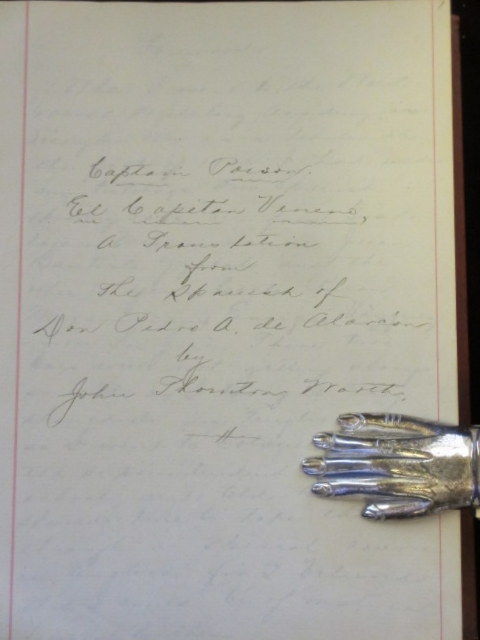 Captain Poison.
El Capitán Veneno,
A Translation
from
the Spanish of
Don Pedro A. de Alarcón
by
John Thornton Worth.